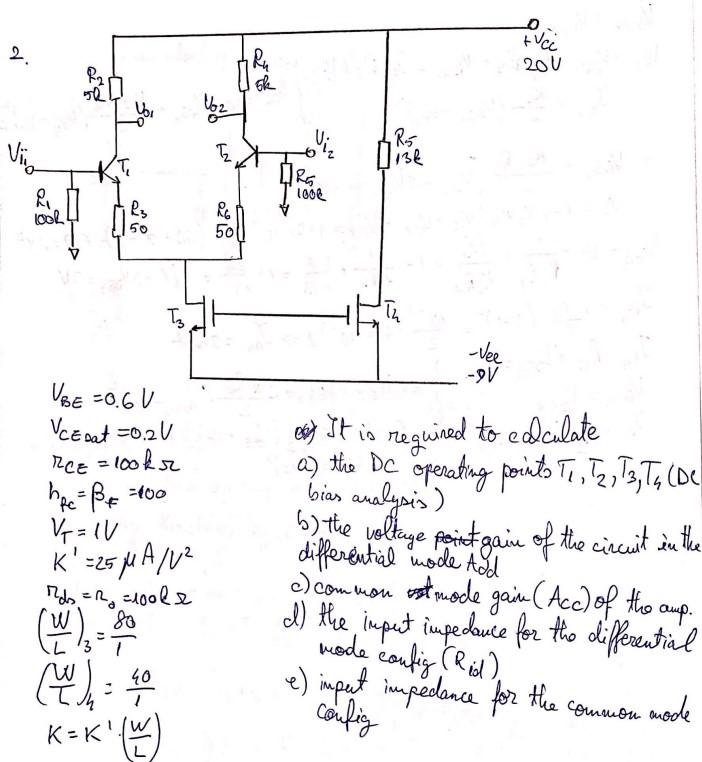 2.
+Vcc
20V
R2
5k
R4
5k
Vo1
Vo2
Vi1
T1
T2
Vi2
R5
13k
R1
100k
R3
50
R6
50
R5
100k
T3
T4
-Vee
-9V
VBE = 0.6 V
VCEsat = 0.2V
rCE = 100k Ω
hfe = βF = 100
VT = 1V
K' = 25 μA/V²
rds = ro = 100k Ω
(W/L)3 = 80/1
(W/L)4 = 40/1
K = K' · (W/L)
It is required to calculate
a) the DC operating points T1, T2, T3, T4 (DC
bias analysis)
b) the voltage gain of the circuit in the
differential mode Add
c) common mode gain (Acc) of the amp.
d) the input impedance for the differential
mode config (Rid)
e) input impedance for the common mode
config